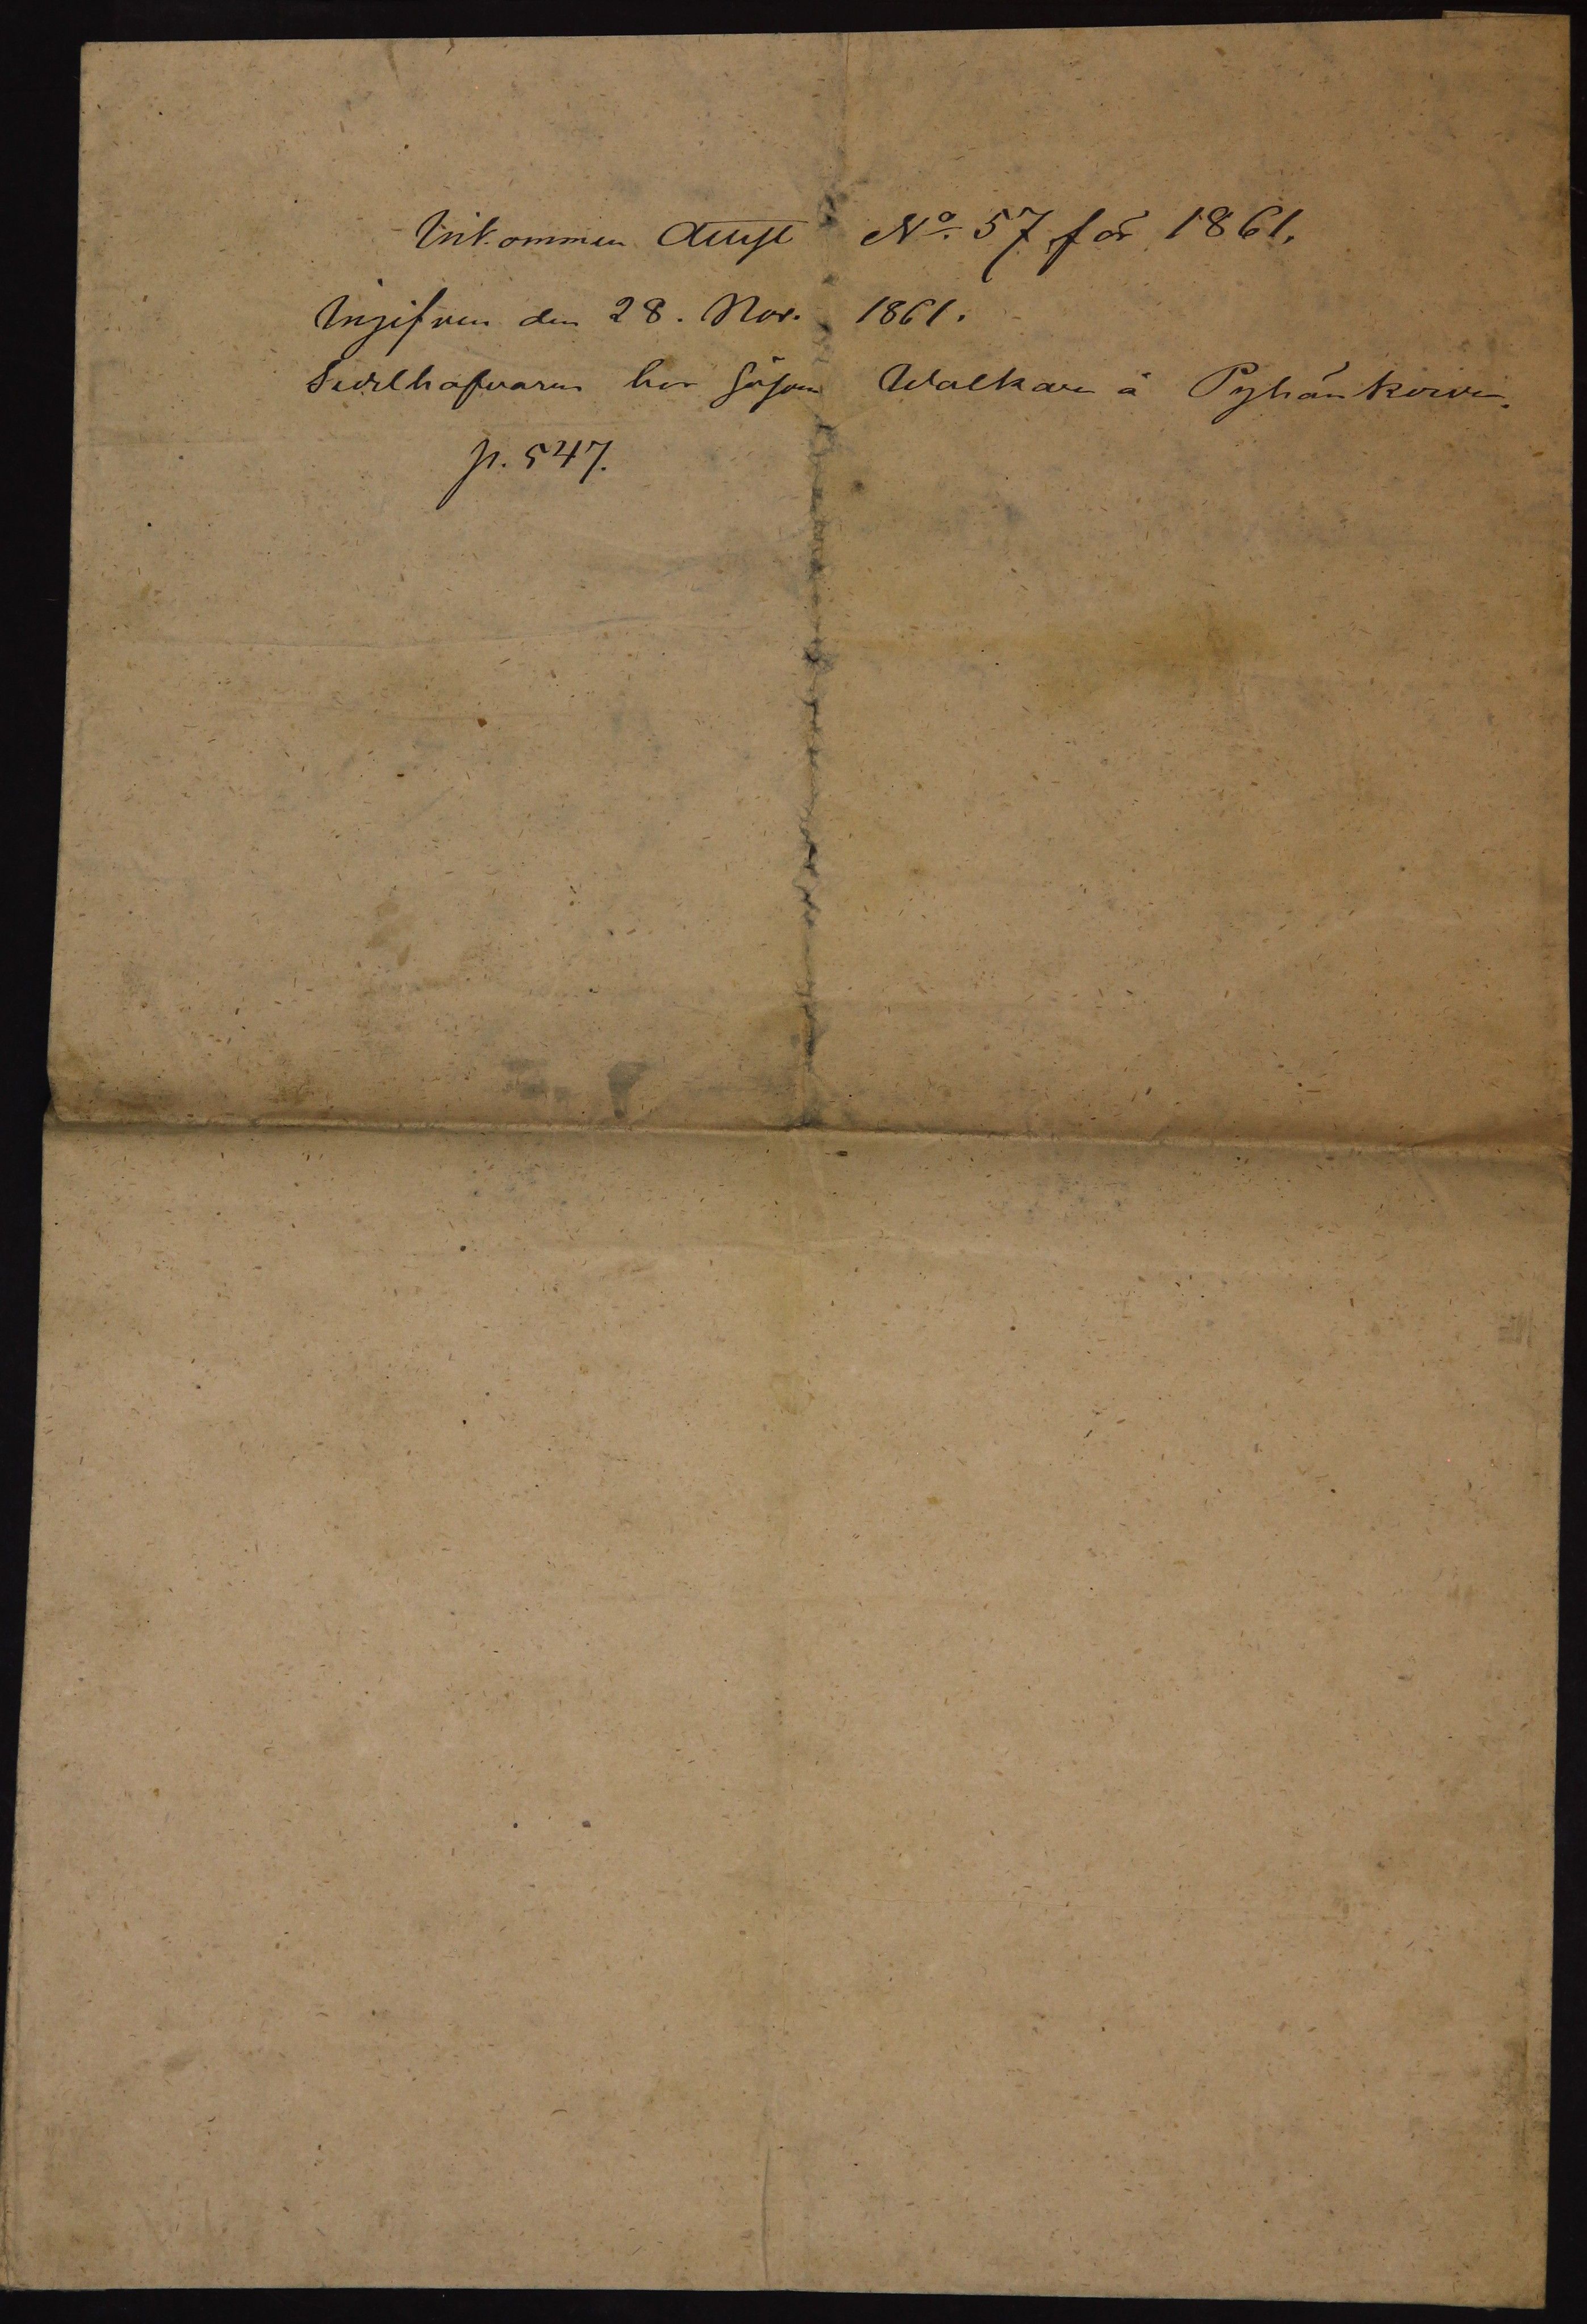 Inkommen Attest No. 57 för 1861.
Ingifven den 28. Nov. 1861.
Sedelhafvaren bor såsom Walkare å Pyhänkoivin.
p. 547.